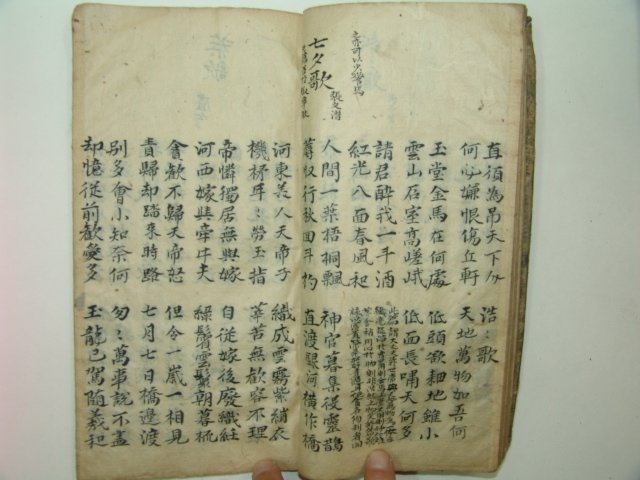 直須為吊天下人
何必嫌恨傷丘軻
浩〻歌
天地萬物如吾何
玉堂金馬在何處
雲山石室高嵯峨
低頭欲耕地雖小
仰面長嘯天何多
請君醉我一斗酒
紅光入面春風和
七夕歌
張文潛
人間一葉梧桐飄
蓐收行秋回斗杓
神官暮集役靈鵲
直渡銀河橫作橋
河東美人天帝子
機杼年〻勞玉指
織成雲霧紫綃衣
辛苦無歡容不理
帝憐獨居無與嫁
河西嫁與牽牛夫
自從嫁後廢織紝
綠鬢雲鬟朝暮梳
貪歡不歸天帝怒
責歸却踏來時路
但令一歲一相見
七月七日橋邊渡
別多會小知奈何
却憶從前歡愛多
匆〻萬事說不盡
玉龍已駕隨羲和